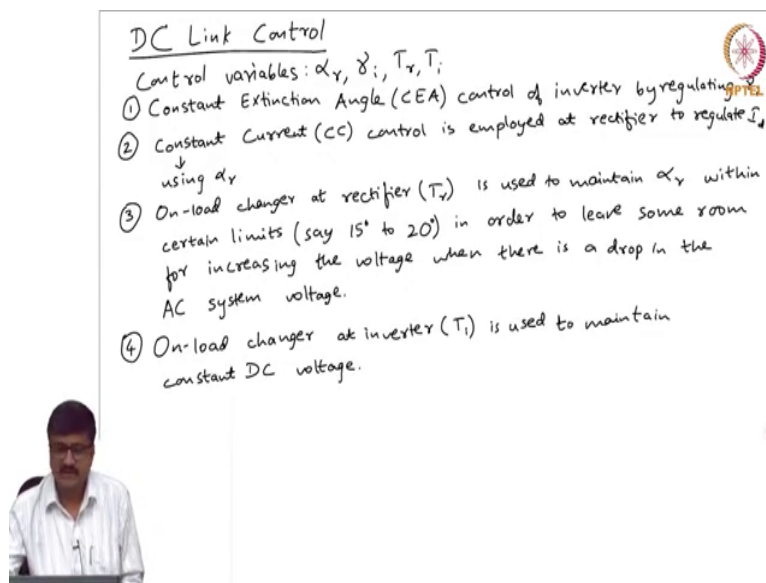 DC Link Control
Control variables: αr, γi, Tr, Ti
① Constant Extinction Angle (CEA) control of inverter by regulating γ
② Constant Current (CC) control is employed at rectifier to regulate Id
↓
using αr
③ On-load changer at rectifier (Tr) is used to maintain αr within
certain limits (say 15° to 20°) in order to leave some room
for increasing the voltage when there is a drop in the
AC system voltage.
④ On-load changer at inverter (Ti) is used to maintain
constant DC voltage.
NPTEL